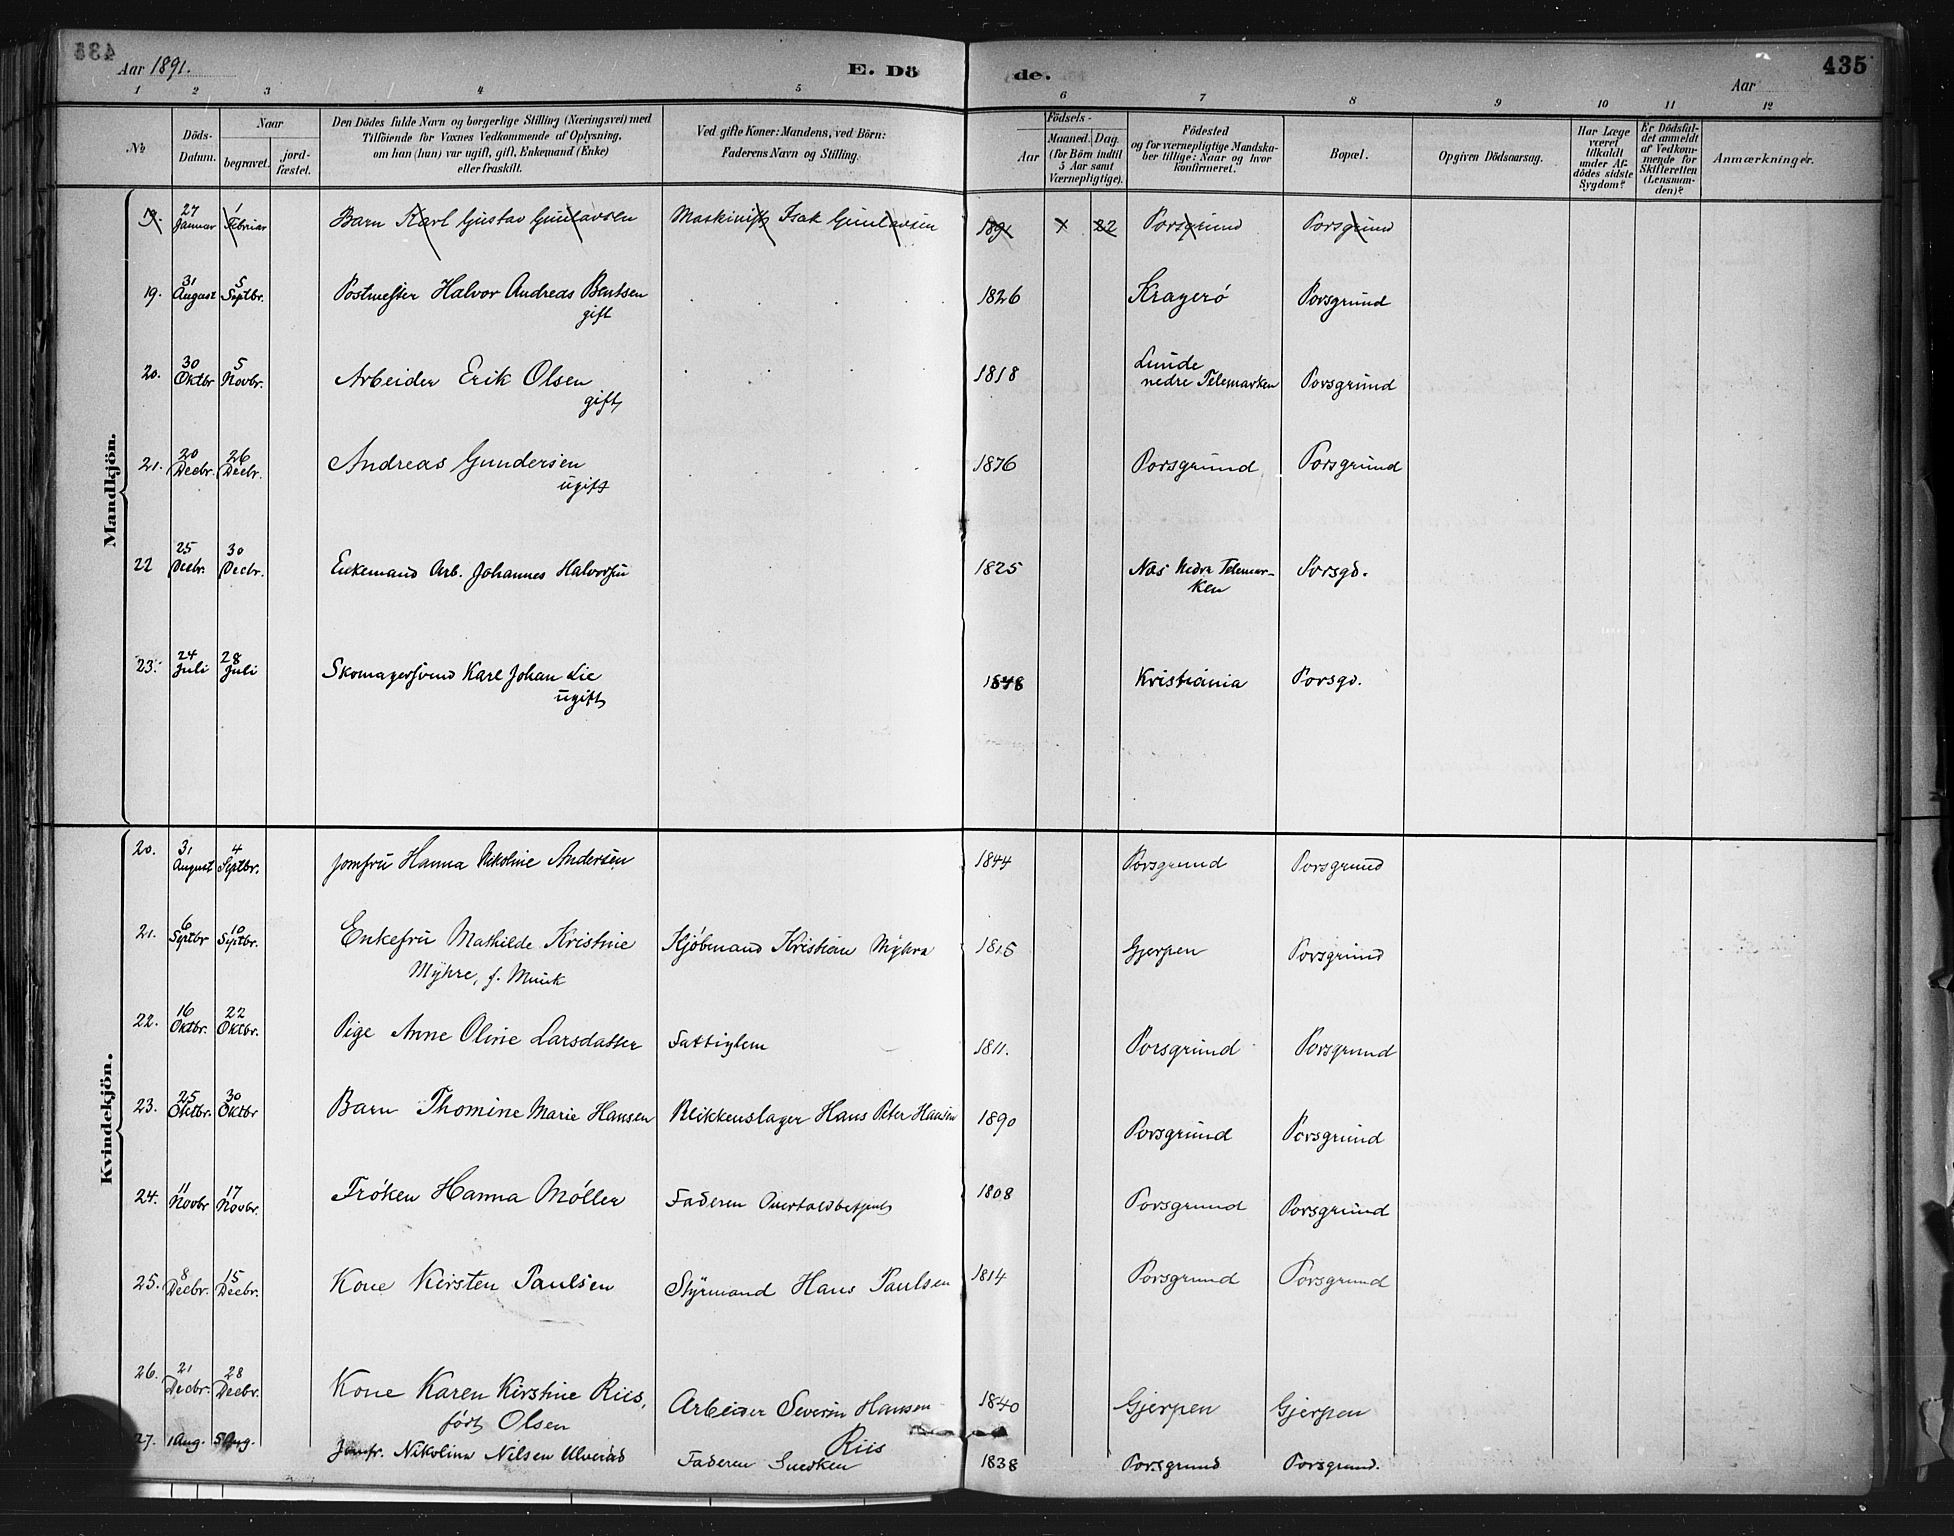 Aar 1891.
E. Dö
de.
Aar
435
1 2 3 4 5 6 7 8 9 10 11 12
No
Döds-Datum.
Naar
begravet.
jord-fæstet.
Den Dödes fulde Navn og borgerlige Stilling (Næringsvei) med
Tilföiende for Voxnes Vedkommende af Oplysning,
om han (hun) var ugift, gift, Enkemand (Enke)
eller fraskilt.
Ved gifte Koner: Mandens, ved Börn:
Faderens Navn og Stilling.
Födsels-
Aar
Maaned. Dag.
(for Börn indtil
5 Aar samt
Værnepligtige).
Födested
og for værnepligtige Mandska-
ber tillige: Naar og hvor
konfirmeret.
Bopæl.
Opgiven Dödsaarsag.
Har Læge
været
tilkaldt
under Af-
dödes sidste
Sygdom?
Er Dödsfal-
det anmeldt
af Vedkom-
mende for
Skifteretten
(Lensman-
den)?
Anmærkninger.
Mandkjön.
19. 27 Januar 1 Februar Barn Karl Gustav Gunlavsen Maskinist Isak Gunlavsen 1891 22 Porsgrund Porsgrund
19. 31 August 5 Septbr. Postmester Halvor Andreas Bentsen 1826 Kragerö Porsgrund
gift
20. 30 Oktbr 5 Novbr. Arbeider Erik Olsen 1818 Lunde nedre Telemarken Porsgrund
gift
21. 20 Decbr. 26 Decbr. Andreas Gundersen 1876 Porsgrund Porsgrund
ugift
22 25 Decbr. 30 Decbr. Enkemand Arb. Johannes Halvorsen 1825 Næs Nedre Telemar-ken Porsgd.
23. 24 Juli 28 Juli Skomagersvend Karl Johan Lie 1848 Kristiania Porsgd.
ugift
Kvindekjön.
20. 31 August 4 Septbr. Jomfru Hanna Nikoline Andersen 1844 Porsgrund Porsgrund
21. 6 Septbr 10 Septbr. Enkefru Mathilde Kristine Kjöbmand Kristian Myhre 1815 Gjerpen Porsgrund
Myhre, f. Munk
22. 16 Oktbr. 22 Oktbr. Pige Anne Oline Larsdatter Fattiglem 1811. Porsgrund Porsgrund
23. 25 Oktbr. 30 Oktbr Barn Thomine Marie Hansen Blikkenslager Hans Peter Hansen 1890 Porsgrund Porsgrund
24. 11 Novbr 17 Novbr. Fröken Hanna Möller Faderen Overtoldbetjent 1808 Porsgrund Porsgrund
25. 8 Decbr. 15 Decbr. Kone Kirsten Paulsen Styrmand Hans Paulsen 1814 Porsgrund Porsgrund
26. 21 Decbr. 28 Decbr. Kone Karen Kirstine Riis, Arbeider Severin Hansen 1840 Gjerpen Gjerpen
födt Olsen Riis
27. 1 Aug. 5 Aug. Jomfr. Nikoline Nilsen Faderen 1838 Porsgrund Porsgrund.